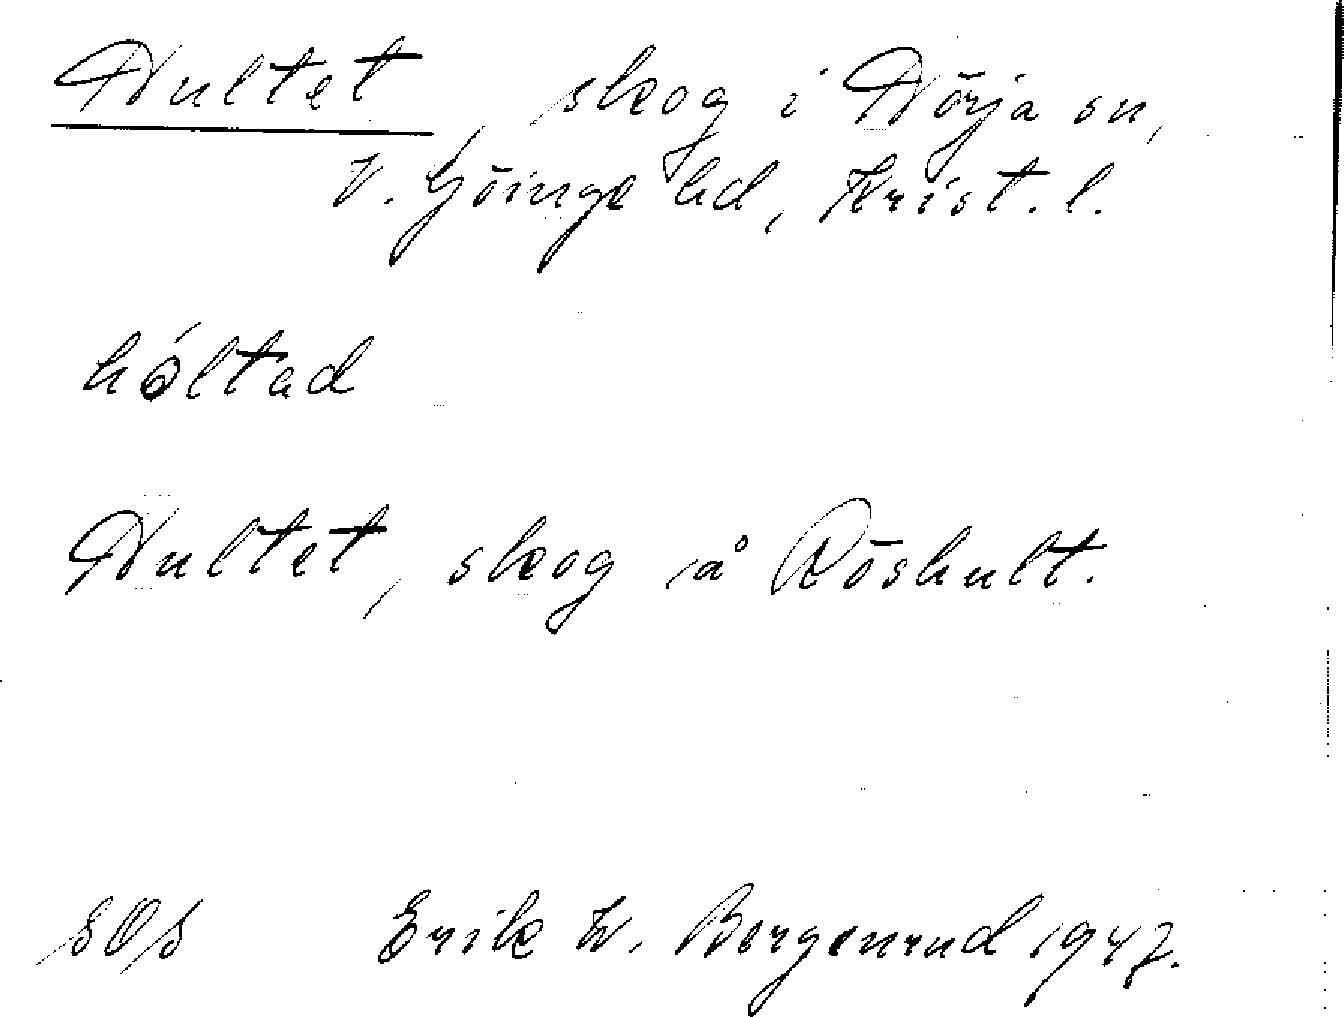 Hultet, skog i Hörja sn,
V. Göinge hd, Krist. l.
hóltad
Hultet, skog på Röshult.
SOS Erik W. Bergenrud 1947.